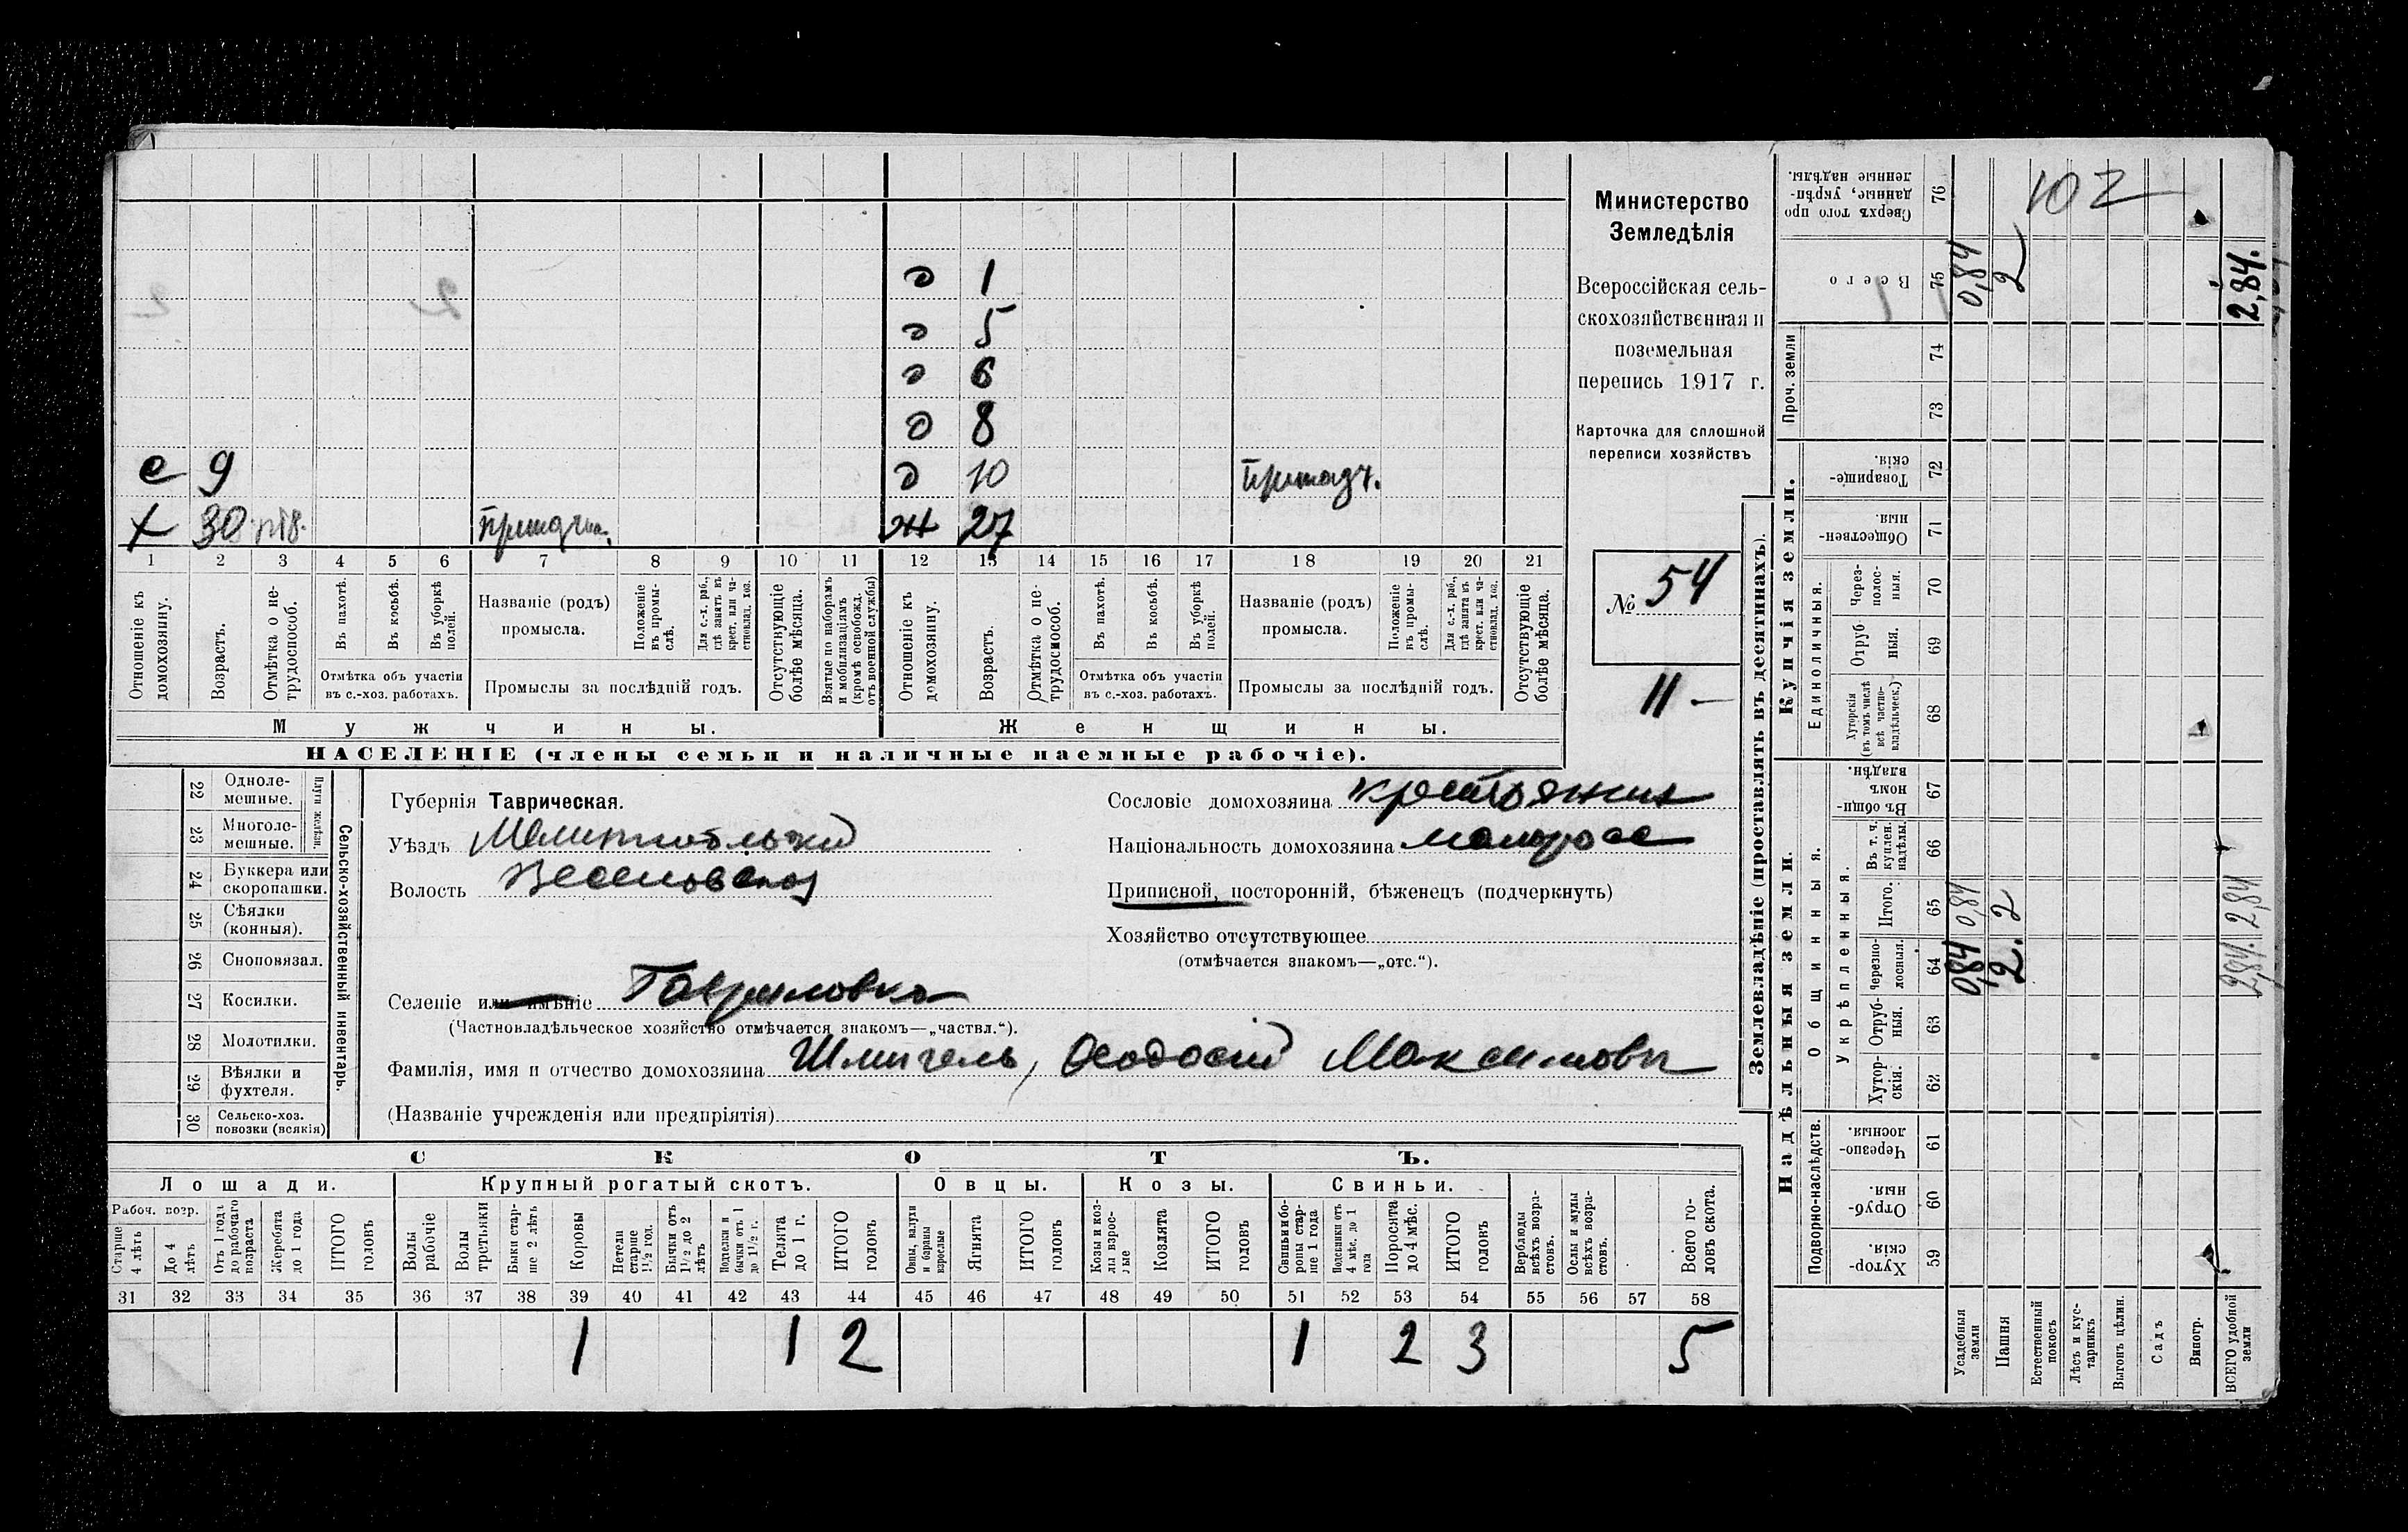 Министерство
Земледѣлія
Всероссійская сель-
скохозяйственная и
поземельная
перепись 1917 г.
Карточка для сплошной
переписи хозяйствъ
№ 54
11 —
э 1
э 5
э 6
э 8
с 9 э 10
х 30 ж 27
1 2 3 4 5 6 7 8 9 10 11 12 13 14 15 16 17 18 19 20 21
Отношеніе къ домохозяину.
Возрастъ.
Отмѣтка о не-трудоспособ.
Въ пахотѣ.
Въ косьбѣ.
Въ уборкѣ полей.
Отмѣтка объ участіи
въ с.-хоз. работахъ.
Названіе (родъ)
промысла.
Положеніе въ промы-слѣ.
Для с.-х. раб., гдѣ занятъ въ крест. или ча-стновлад. хоз.
Промыслы за послѣдній годъ.
Отсутствующіе болѣе мѣсяца.
Взятые по наборамъ и мобилизаціямъ (кромѣ освобожд. отъ военной службы)
Отношеніе къ домохозяину.
Возрастъ.
Отмѣтка о не-трудоспособ.
Въ пахотѣ.
Въ косьбѣ.
Въ уборкѣ полей.
Отмѣтка объ участіи
въ с.-хоз. работахъ.
Названіе (родъ)
промысла.
Положеніе въ промы-слѣ.
Для с.-х. раб., гдѣ занята въ крест. или ча-стновлад. хоз.
Промыслы за послѣдній годъ.
Отсутствующіе болѣе мѣсяца.
Мужчины. Женщины.
НАСЕЛЕНІЕ (члены семьи и наличные наемные рабочіе).
22 Одноле-мешные.
23 Многоле-мешные.
Плуги желѣзн.
24 Буккера или скоропашки.
25 Сѣялки (конныя).
26 Сноповязал.
27 Косилки.
28 Молотилки.
29 Вѣялки и фухтеля.
30 Сельско-хоз. повозки (всякія)
Сельско-хозяйственный инвентарь.
Губернія Таврическая.
Уѣздъ Мелитопольскій
Волость Веселовская
Селеніе или имѣніе Гавриловка
(Частновладѣльческое хозяйство отмѣчается знакомъ—„частвл.“).
Фамилія, имя и отчество домохозяина Шмигель, Ѳеодосій Максимовъ
(Названіе учрежденія или предпріятія)
Сословіе домохозяина крестьянин
Національность домохозяина малоросс
Приписной, посторонній, бѣженецъ (подчеркнуть)
Хозяйство отсутствующее
(отмѣчается знакомъ—„отс.“).
СКОТЪ.
Лошади. Крупный рогатый скотъ. Овцы. Козы. Свиньи.
Рабоч. возр.
Старше 4 лѣтъ
До 4 лѣтъ
Отъ 1 года до рабочаго возраста
Жеребята до 1 года
ИТОГО головъ
Волы рабочіе
Волы третьяки
Быки стар-ше 2 лѣтъ
Коровы
Нетели старше 1½ год.
Бычки отъ 1½ до 2 лѣтъ
Подтелки и бычки отъ 1 до 1½ г.
Телята до 1 г.
ИТОГО головъ
Овцы, валухи и бараны взрослые
Ягнята
ИТОГО головъ
Козы и коз-лы взрос-лые
Козлята
ИТОГО головъ
Свиньи и бо-ровы стар-ше 1 года
Подсвинки отъ 4 мѣс. до 1 года
Поросята до 4 мѣс.
ИТОГО головъ
Верблюды всѣхъ возра-стовъ.
Ослы и мулы всѣхъ возра-стовъ.
Всего го-ловъ скота.
31 32 33 34 35 36 37 38 39 40 41 42 43 44 45 46 47 48 49 50 51 52 53 54 55 56 57 58
1 1 2 1 2 3 5
Землевладѣніе (проставлять въ десятинахъ).
Надѣльныя земли. Купчія земли.
Проч. земли
Подворно-наслѣдств.
Общинныя.
Укрѣпленныя.
Единоличныя.
Сверхъ того про-данные, укрѣп-ленные надѣлы. 76
Всего 75
74
73
Товарище-скія. 72
Обществен-ныя. 71
Через-полос-ныя. 70
Отруб-ныя. 69
Хуторскія (въ томъ числѣ всѣ частно-владѣльческ.) 68
Въ общин-номъ владѣн. 67
Въ т. ч. куплен. надѣлы. 66
Итого. 65
Черезпо-лосныя. 64
Отруб-ныя. 63
Хутор-скія. 62
Черезпо-лосныя. 61
Отруб-ныя. 60
Хутор-скія. 59
Усадебныя земли 0,84 0,84 0,84
Пашня 2 2 2
Естественный покосъ
Лѣсъ и кус-тарникъ
Выгонъ цѣлин.
Садъ
Виногр.
ВСЕГО удобной земли 2,84 2,84 2,84